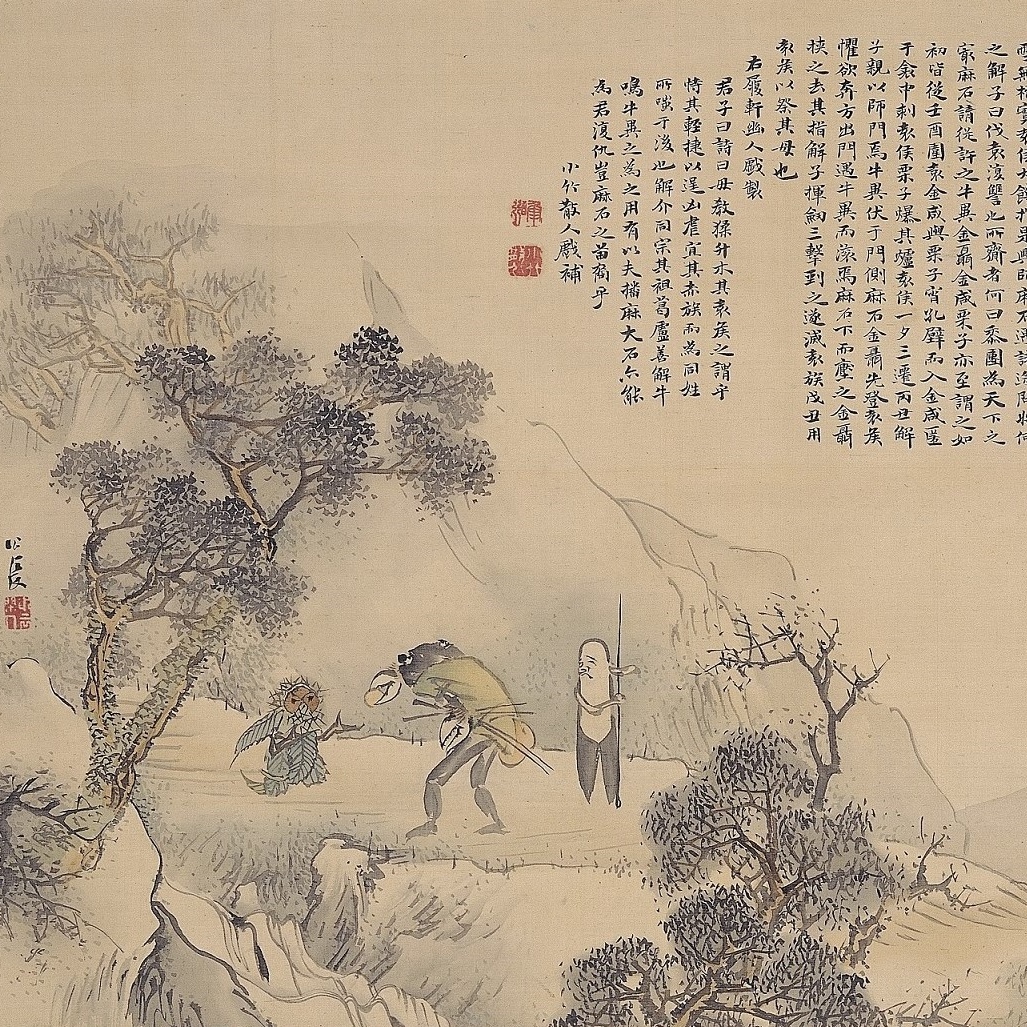 之解子曰伐袁復讐也所齎者何曰黍團為天下之
家麻石請從許之牛異金聶金咸栗子亦至謂之如
初皆從壬酉圍袁金咸與栗子宵孔壁而入金咸匿
于衾中刺袁侯栗子爆其爐袁侯一夕三遷丙丑解
子親以師門焉牛異伏于門側麻石金聶先登袁侯
懼欲奔方出門遇牛異而滾焉麻石下而壓之金聶
挾之去其指解子揮劒三擊剄之遂滅袁族戊丑用
袁侯以祭其母也
右履軒幽人戲製
君子曰詩曰毋教猱升木其袁侯之謂乎
恃其輕捷以逞凶虐宜其赤族而為同姓
所嗤于後也解介同宗其祖葛盧善解牛
鳴牛異之為之用有以夫播麻大石亦能
為君復仇豈麻石之苗裔乎
小竹散人戲補
公長